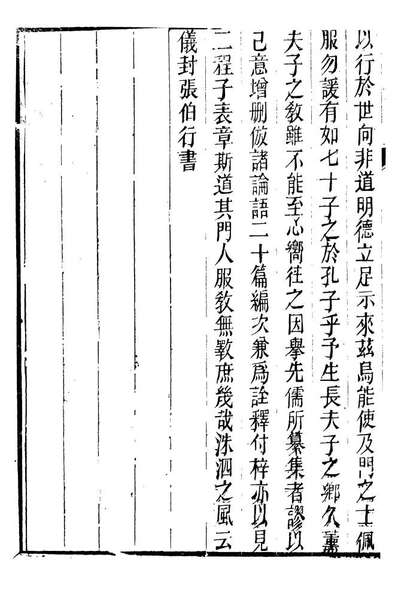 以行於世向非道明德立足示來茲烏能使及門之士佩
服勿諼有如七十子之於孔子乎予生長夫子之鄉久薰
夫子之敎雖不能至心嚮往之因舉先儒所纂集者謬以
己意增删倣諸論語二十篇編次兼爲詮釋付梓亦以見
二程子表章斯道其門人服敎無斁庶幾哉洙泗之風云
儀封張伯行書